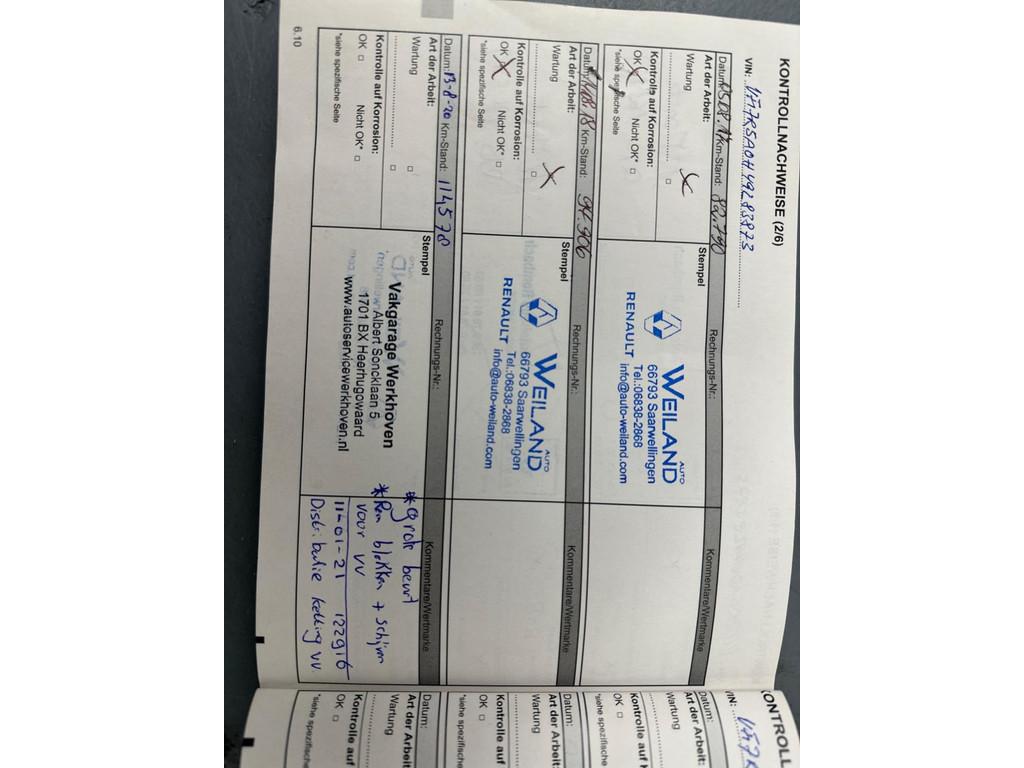 KONTROLLNACHWEISE (2/6)
VIN:
Datum: Km-Stand: 82.790
Rechnungs-Nr.:
Kommentare/Wertmarke
Art der Arbeit:
Wartung
Kontrolle auf Korrosion:
OK Nicht OK*
*siehe spezifische Seite
Stempel
RENAULT
AUTO
WEILAND
66793 Saarwellingen
Tel.:06838-2868
info@auto-weiland.com
Datum: Km-Stand: 94.906
Rechnungs-Nr.:
Kommentare/Wertmarke
Art der Arbeit:
Wartung
Kontrolle auf Korrosion:
OK Nicht OK*
*siehe spezifische Seite
Stempel
RENAULT
AUTO
WEILAND
66793 Saarwellingen
Tel.:06838-2868
info@auto-weiland.com
Datum: 13-8-20 Km-Stand: 114578
Rechnungs-Nr.:
Kommentare/Wertmarke
Art der Arbeit:
Wartung
Kontrolle auf Korrosion:
OK Nicht OK*
*siehe spezifische Seite
Stempel
Vakgarage Werkhoven
Albert Soncklaan 5
1701 BX Heerhugowaard
www.autoservicewerkhoven.nl
*grote beurt
*Rem blokken + schijven
voor vv
11-01-21 122916
Distributie ketting vv
6.10
KONTROLL
VIN:
Datum:
Art der Arbeit:
Wartung
Kontrolle auf
OK
*siehe spezifische
Datum:
Art der Arbeit:
Wartung
Kontrolle auf
OK
*siehe spezifische
Datum:
Art der Arbeit:
Wartung
Kontrolle auf
OK
*siehe spezifische